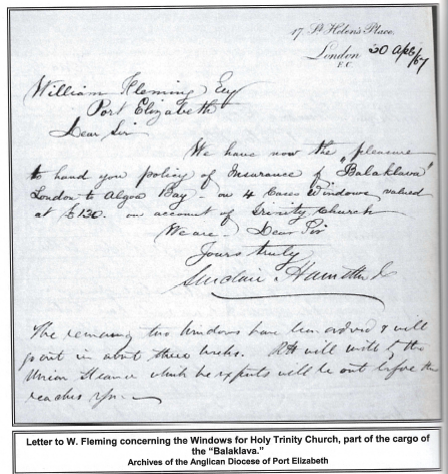 17, St Helen's Place,
London 20 Apl/67
E.C.
William Fleming Esq
Port Elizabeth
Dear Sir
We have now the pleasure
to hand you policy of Insurance p "Balaklava"
London to Algoa Bay - on 4 Cases Windows valued
at £130. on account of Trinity Church
We are - Dear Sir
Yours truly
Sinclair Hamilton & Co
The remaining two Windows have been ordered & will
go out in about three weeks. will write by the
Union Steamer which he expects will be out before this
reaches you -
Letter to W. Fleming concerning the Windows for Holy Trinity Church, part of the cargo of
the "Balaklava."
Archives of the Anglican Diocese of Port Elizabeth